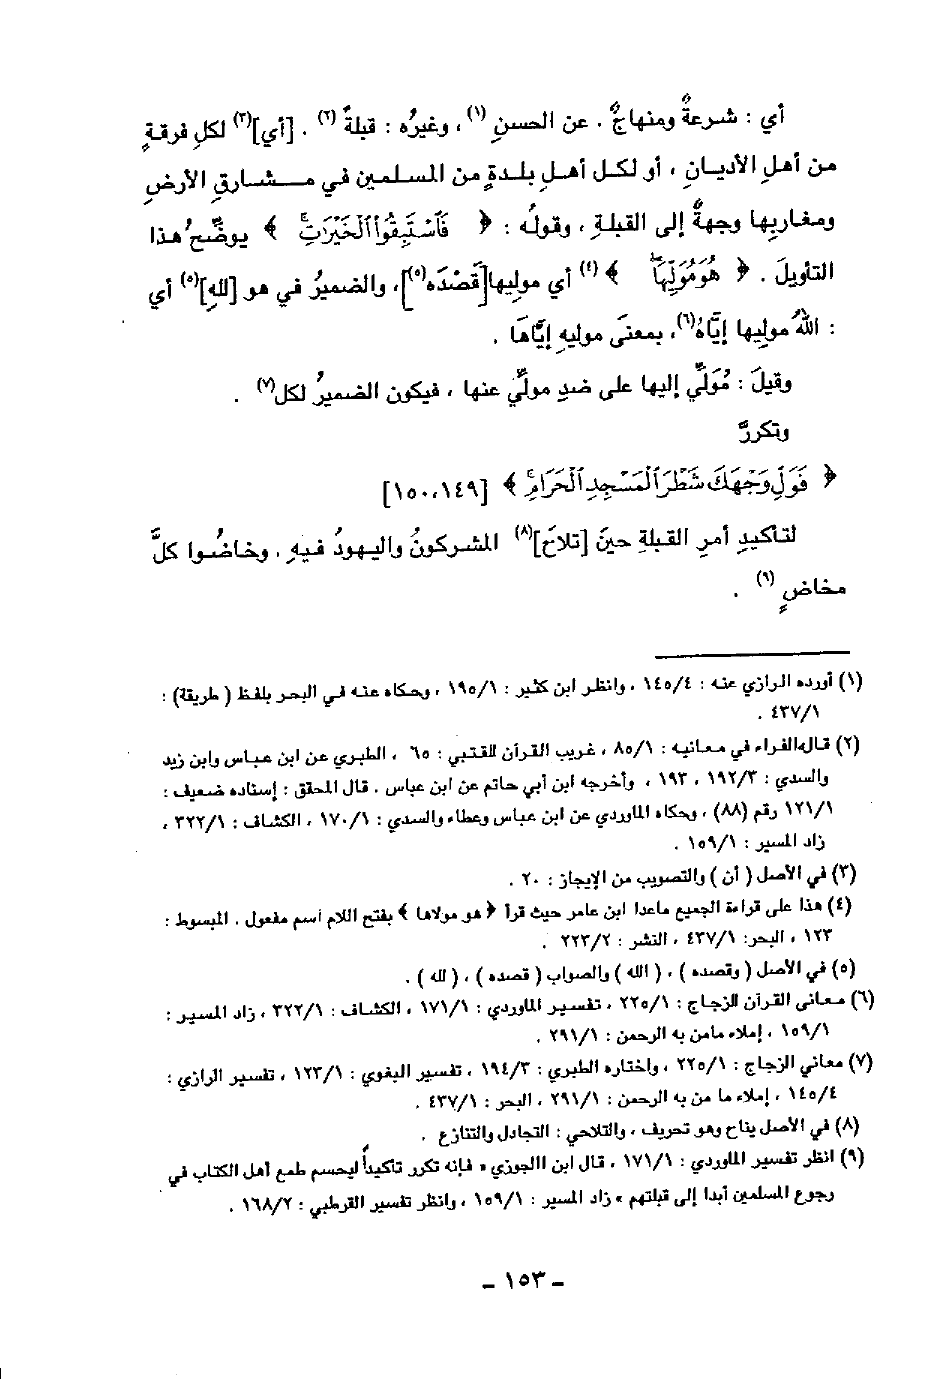 أي : شرعةٌ ومنهاجٌ . عن الحسنِ (١) ، وغيرُه : قبلةٌ (٢) . [أي](٣) لكلِ فرقةٍ
من أهلِ الأديـانِ ، أو لكـل أهـلِ بلـدةٍ من المسلمين في مـشـارقِ الأرضِ
ومغاربِها وجهةٌ إلى القبلةِ ، وقولُه : ﴿ فَٱسْتَبِقُوا۟ ٱلْخَيْرَٰتِ ﴾ يوضِّحُ هذا
التأويلَ . ﴿ هُوَ مُوَلِّيهَا ﴾ (٤) أي موليها[قَصْدَه(٥)]، والضميرُ في هو [للهِ](٥) أي
: اللهُ موليها إيَّاهُ(٦)، بمعنَى موليهِ إيَّاهَا .
وقيلَ : مُوَلٍّ إليها على ضدِ مولٍّ عنها ، فيكون الضميرُ لكل(٧) .
وتكررَّ
﴿ فَوَلِّ وَجْهَكَ شَطْرَ ٱلْمَسْجِدِ ٱلْحَرَامِ ﴾ [١٥٠،١٤٩]
لتأكيدِ أمرِ القبلةِ حينَ [تلاحَ](٨) المشركونُ واليهودُ فيهِ . وخاضُوا كلَّ
مخاضٍ (٩) .
(١) أورده الرازي عنه : ١٤٥/٤ ، وانظر ابن كثير : ١٩٥/١ ، وحكاه عنه في البحر بلفظ ( طريقة) :
٤٣٧/١ .
(٢) قاله الفراء في معانيه : ٨٥/١ ، غريب القرآن للقتبي : ٦٥ ، الطبري عن ابن عباس وابن زيد
والسدي : ١٩٢/٣ ، ١٩٣ ، وأخرجه ابن أبي حاتم عن ابن عباس . قال المحقق : إسناده ضعيف :
١٢١/١ رقم (٨٨) ، وحكاه الماوردي عن ابن عباس وعطاء والسدي : ١٧٠/١ ، الكشاف : ٣٢٢/١ ،
زاد المسير : ١٥٩/١ .
(٣) في الأصل ( أن ) والتصويب من الإيجاز : ٢٠ .
(٤) هذا على قراءة الجميع ماعدا ابن عامر حيث قرأ ﴿ هو مولاها ﴾ بفتح اللام اسم مفعول . المبسوط :
١٢٣ ، البحر: ٤٣٧/١ ، النشر : ٢٢٣/٢ .
(٥) في الأصل ( وقصده ) ، ( الله ) والصواب ( قصده ) ، ( لله ) .
(٦) معاني القرآن للزجاج : ٢٢٥/١ ، تفسير الماوردي : ١٧١/١ ، الكشاف : ٣٢٢/١ ، زاد المسير :
١٥٩/١ ، إملاء مامن به الرحمن : ٢٩١/١ .
(٧) معاني الزجاج : ٢٢٥/١ ، واختاره الطبري : ١٩٤/٣ ، تفسير البغوي : ١٢٣/١ ، تفسير الرازي :
١٤٥/٤ ، إملاء ما من به الرحمن : ٢٩١/١ ، البحر : ٤٣٧/١ .
(٨) في الأصل يناح وهو تحريف ، والتلاحي : التجادل والتنازع .
(٩) انظر تفسير الماوردي : ١٧١/١ ، قال ابن االجوزي « فإنه تكرر تأكيداً ليحسم طمع أهل الكتاب في
رجوع المسلمين أبدا إلى قبلتهم » زاد المسير : ١٥٩/١ ، وانظر تفسير القرطبي : ١٦٨/٢ .
ـ ١٥٣ ـ